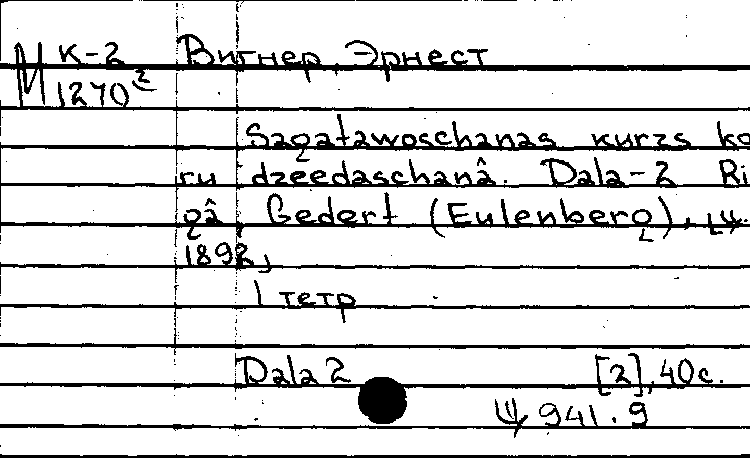 М К-2 Вигнер, Эрнест
1270²
Sagatawoschanas kurzs ko
ru dzeedaschanâ. Dala-2 Ri
gâ, Gedert (Eulenberg), ц.
1892,
1 тетр
Dala 2 [2], 40с.
Ц 941.9